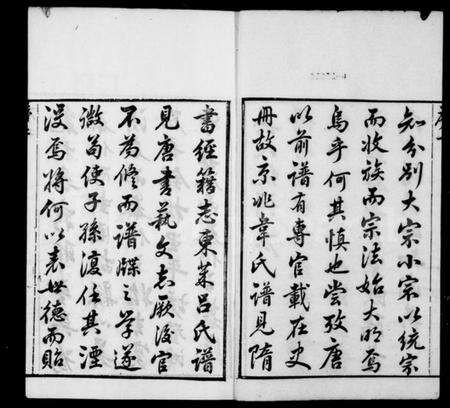 知分別大宗小宗以統宗
而收族而宗法始大明焉
烏乎何其慎也嘗攷唐
以前譜有專官載在史
冊故京兆韋氏譜見隋
書經籍志東萊呂氏譜
見唐書藝文志厥後官
不為修而譜牒之學遂
微苟使子孫復任其湮
沒焉將何以表世德而貽